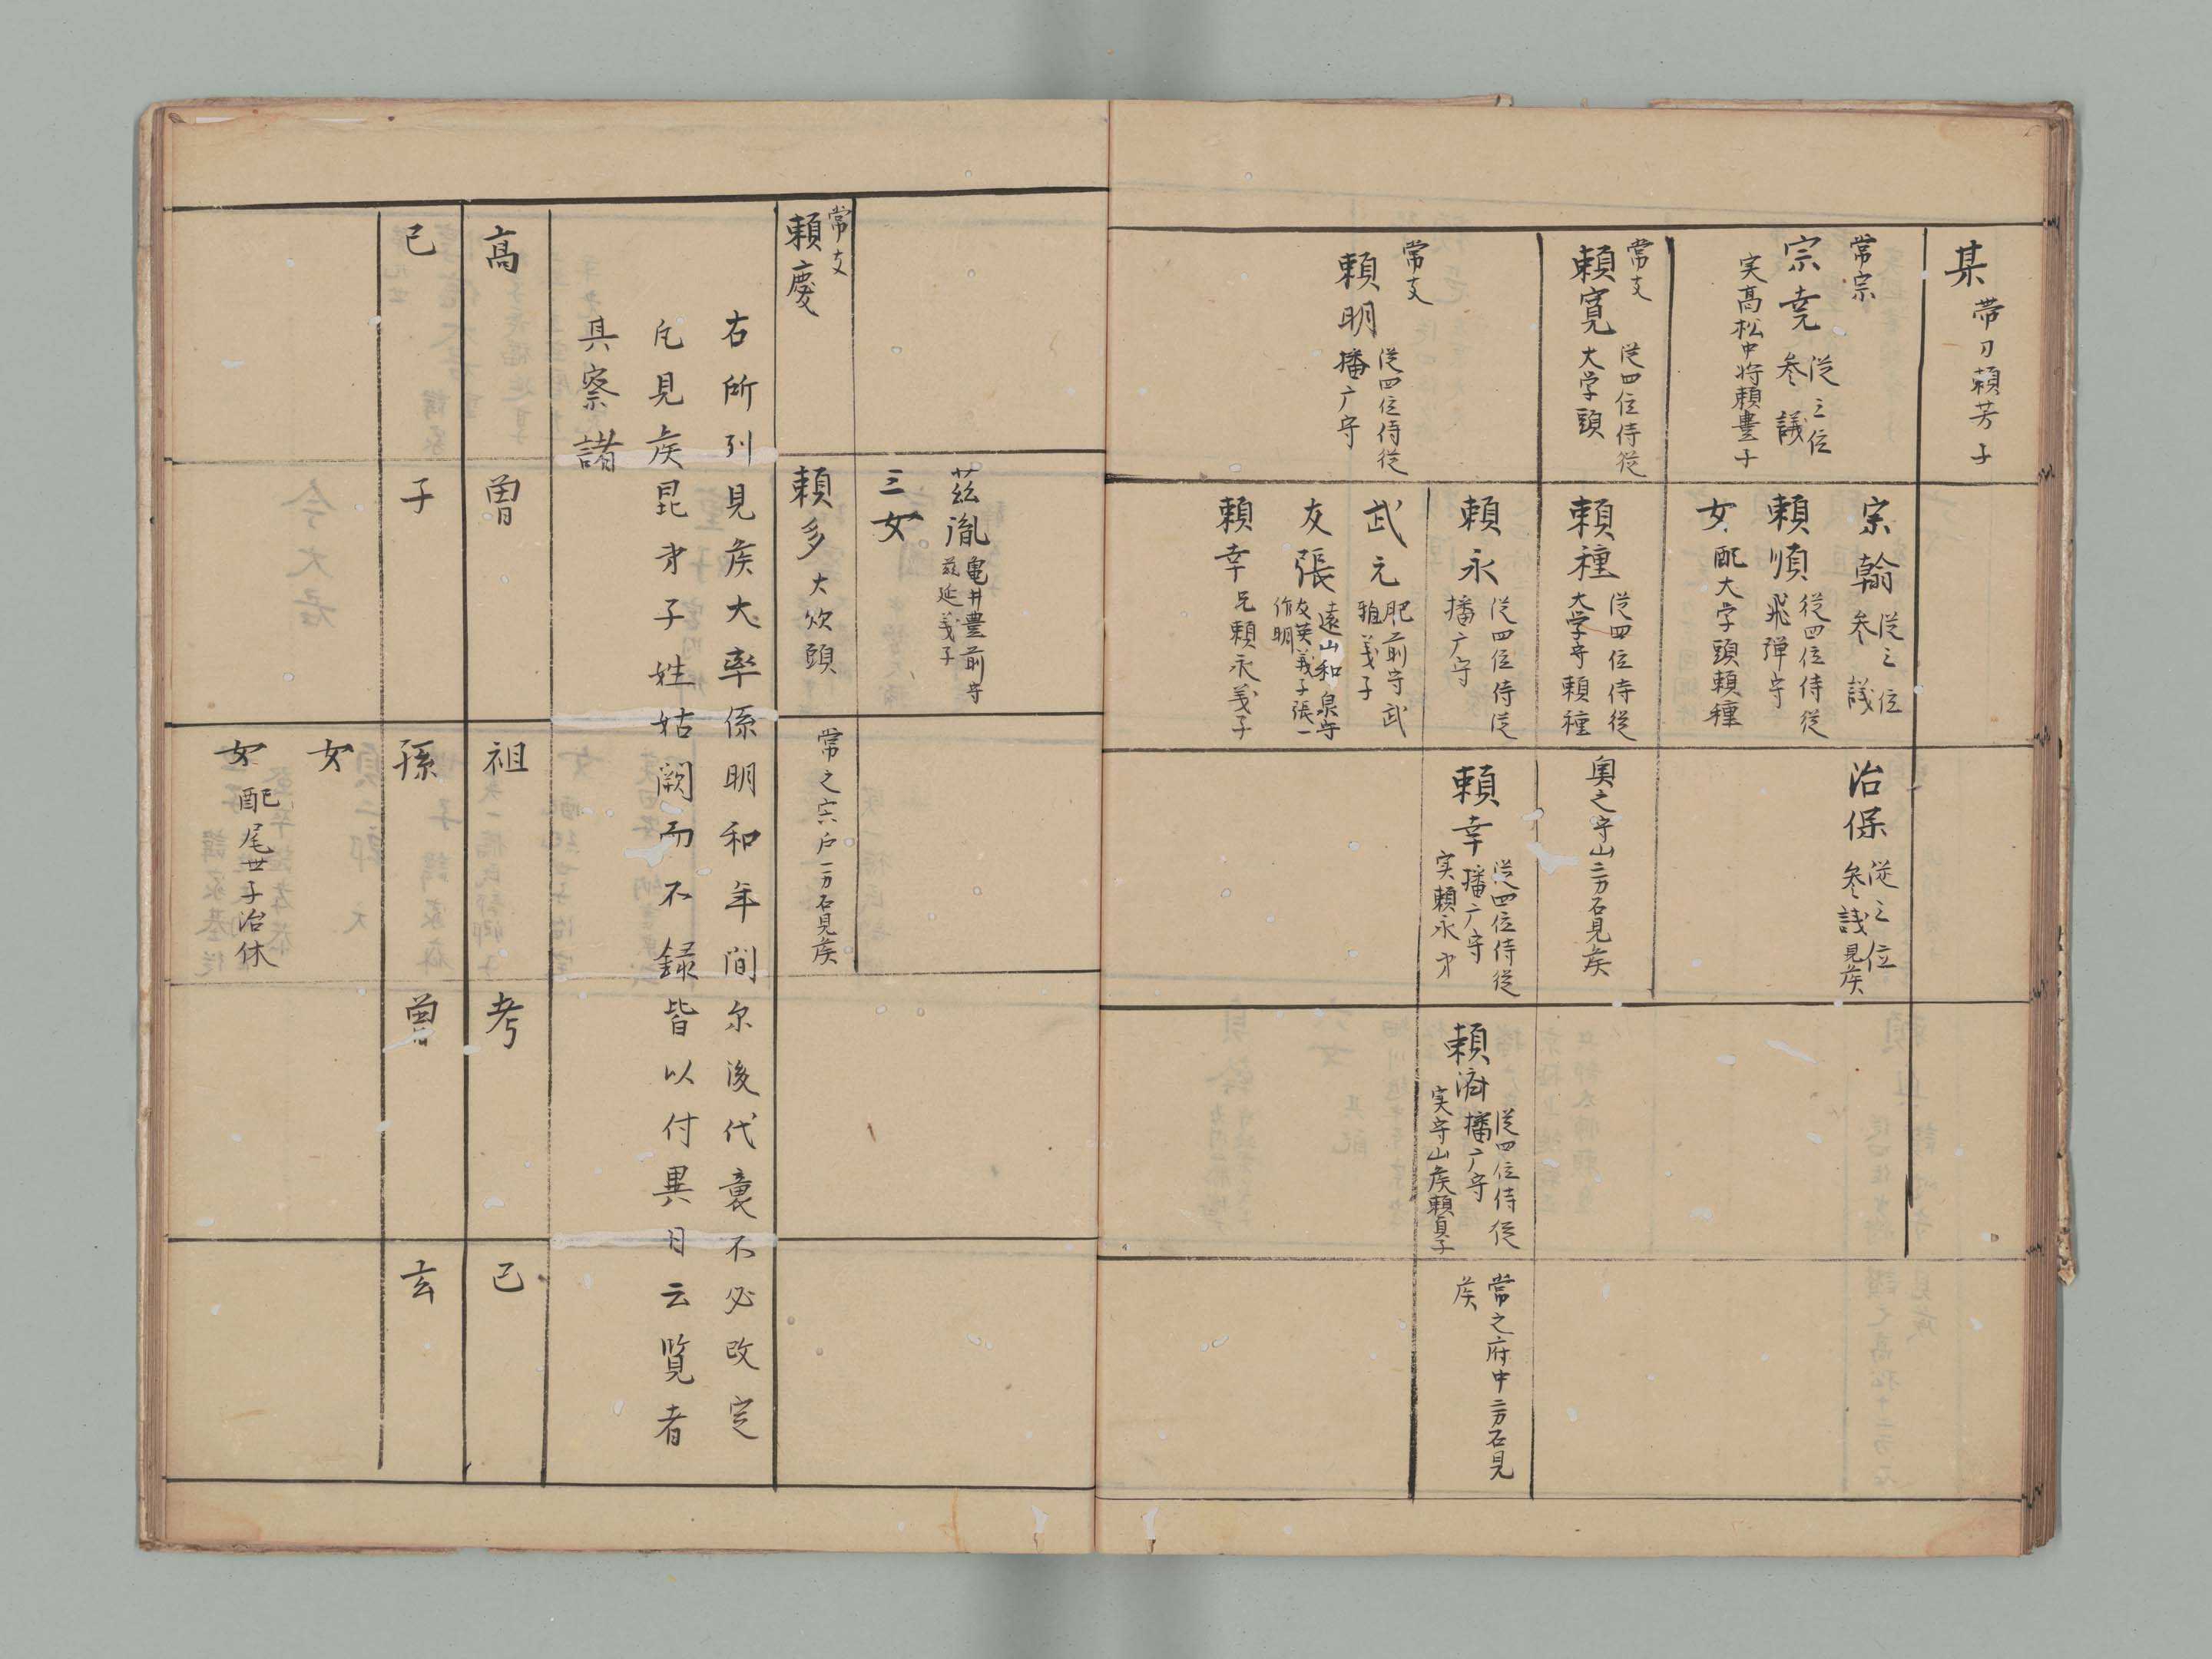 某
帯刀頼芳子
常宗
宗尭
従三位
参議
実高松中将頼豊子
常支
頼寛
従四位侍従
大学頭
常支
頼明
従四位侍従
播广守
宗翰
従三位
参議
頼順
従四位侍従
飛弾守
女
配大学頭頼種
頼種
従四位侍従
大学守頼種
頼永
従四位侍従
播广守
武元
肥前守武
雅義子
友張
遠山和泉守
友英義子張一
作明
頼幸
兄頼永義子
治保
従三位
参議見矦
奥之守山二万石見矦
頼幸
従四位侍従
播广守
実頼永才
頼済
従四位侍従
播广守
実守山矦頼貞子
常之府中二万石見
矦
茲胤
亀井豊前守
茲延義子
三女
常支
頼慶
頼多
大炊頭
常之宍戸一万石見矦
右所列見矦大率係明和年間尓後代襄不必改定
凡見矦昆才子姓姑闕而不録皆以付異日云覧者
具察諸
高
曽
祖
考
己
己
子
孫
曽
玄
女
女
配尾世子治休